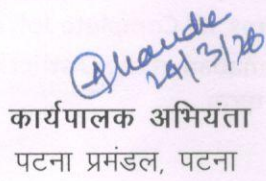 24/3/20
कार्यपालक अभियंता
पटना प्रमंडल, पटना